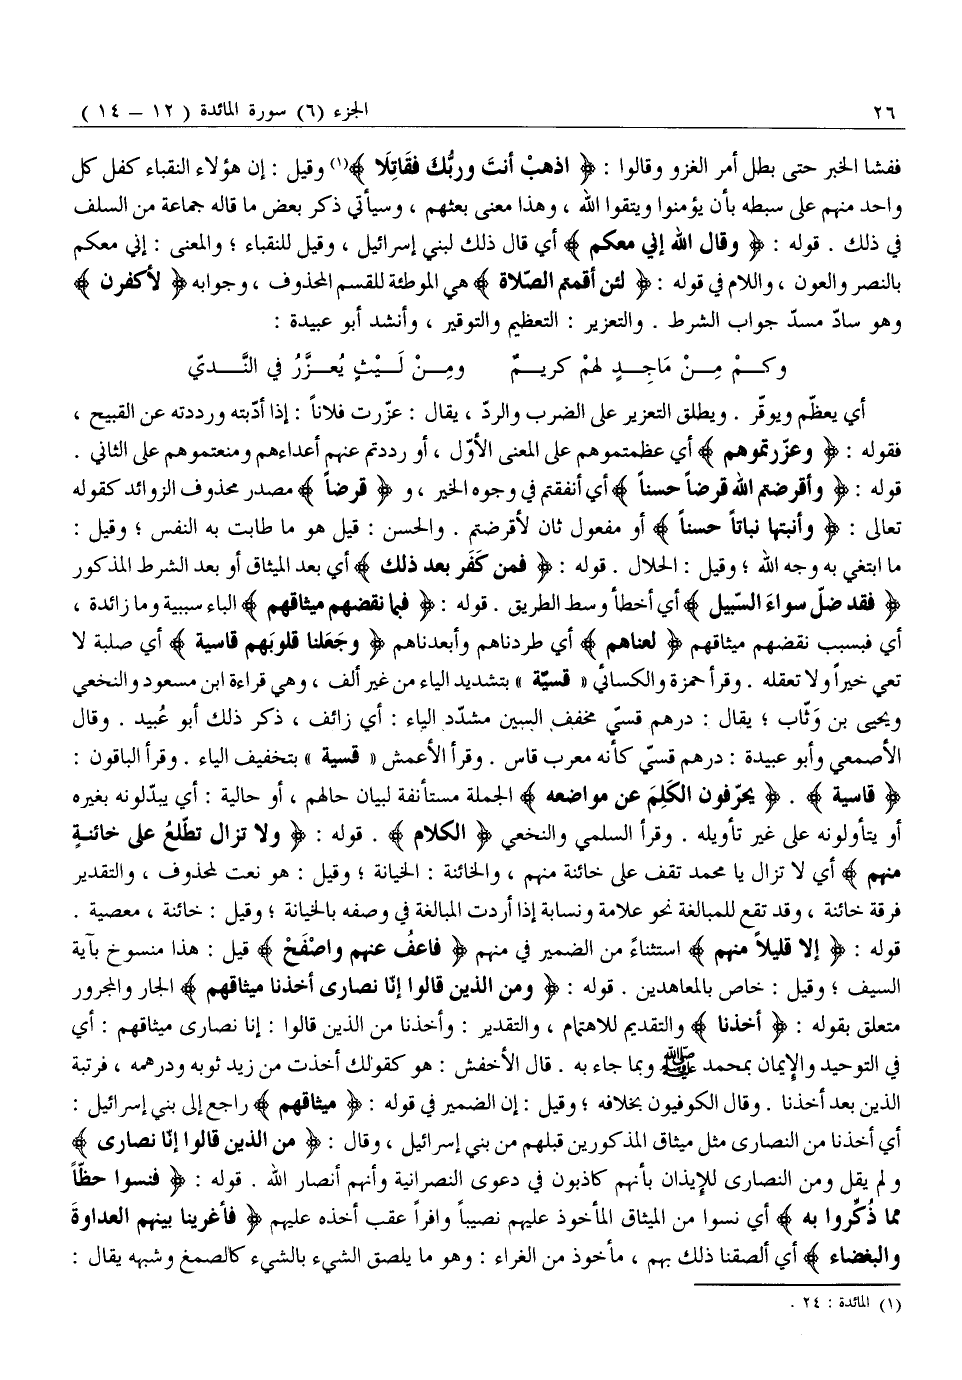 ٢٦ الجزء (٦) سورة المائدة ( ١٢ – ١٤ )
ففشا الخبر حتى بطل أمر الغزو وقالوا : ﴿ اذهبْ أنتَ وربُّكَ فقَاتِلَا ﴾(١) وقيل : إن هؤلاء النقباء كفل كل
واحد منهم على سبطه بأن يؤمنوا ويتقوا الله ، وهذا معنى بعثهم ، وسيأتي ذكر بعض ما قاله جماعة من السلف
في ذلك . قوله : ﴿ وقال الله إني معكم ﴾ أي قال ذلك لبني إسرائيل ، وقيل للنقباء ؛ والمعنى : إني معكم
بالنصر والعون ، واللام في قوله : ﴿ لئن أقمتم الصّلاة ﴾ هي الموطئة للقسم المحذوف ، وجوابه ﴿ لأكفرن ﴾
وهو سادّ مسدّ جواب الشرط . والتعزير : التعظيم والتوقير ، وأنشد أبو عبيدة :
وكـمْ مِـنْ مَاجِـدٍ لهمْ كريـمٌ ومِـنْ لَيْـثٍ يُعـزَّرُ في النَّـديّ
أي يعظّم ويوقّر . ويطلق التعزير على الضرب والردّ ، يقال : عزّرت فلاناً : إذا أدّبته ورددته عن القبيح ،
فقوله : ﴿ وعزّرتموهم ﴾ أي عظمتموهم على المعنى الأوّل ، أو رددتم عنهم أعداءهم ومنعتموهم على الثاني .
قوله : ﴿ وأقرضتم الله قرضاً حسناً ﴾ أي أنفقتم في وجوه الخير ، و ﴿ قرضاً ﴾ مصدر محذوف الزوائد كقوله
تعالى : ﴿ وأنبتها نباتاً حسناً ﴾ أو مفعول ثان لأقرضتم . والحسن : قيل هو ما طابت به النفس ؛ وقيل :
ما ابتغي به وجه الله ؛ وقيل : الحلال . قوله : ﴿ فمن كَفَر بعد ذلك ﴾ أي بعد الميثاق أو بعد الشرط المذكور
﴿ فقد ضلّ سواءَ السّبيل ﴾ أي أخطأ وسط الطريق . قوله : ﴿ فبما نقضهم ميثاقهم ﴾ الباء سببية وما زائدة ،
أي فبسبب نقضهم ميثاقهم ﴿ لعناهم ﴾ أي طردناهم وأبعدناهم ﴿ وجَعَلنا قلوبَهم قاسية ﴾ أي صلبة لا
تعي خيراً ولا تعقله . وقرأ حمزة والكسائي « قسيّة » بتشديد الياء من غير ألف ، وهي قراءة ابن مسعود والنخعي
ويحيى بن وَثّاب ؛ يقال : درهم قسيّ مخفف السين مشدّد الياء : أي زائف ، ذكر ذلك أبو عُبيد . وقال
الأصمعي وأبو عبيدة : درهم قسيّ كأنه معرب قاس . وقرأ الأعمش « قسية » بتخفيف الياء . وقرأ الباقون :
﴿ قاسية ﴾ . ﴿ يحرّفون الكَلِمَ عن مواضعه ﴾ الجملة مستأنفة لبيان حالهم ، أو حالية : أي يبدّلونه بغيره
أو يتأولونه على غير تأويله . وقرأ السلمي والنخعي ﴿ الكلام ﴾ . قوله : ﴿ ولا تزال تطّلعُ على خائنـةٍ
منهم ﴾ أي لا تزال يا محمد تقف على خائنة منهم ، والخائنة : الخيانة ؛ وقيل : هو نعت لمحذوف ، والتقدير
فرقة خائنة ، وقد تقع للمبالغة نحو علامة ونسابة إذا أردت المبالغة في وصفه بالخيانة ؛ وقيل : خائنة ، معصية .
قوله : ﴿ إلا قليلاً منهم ﴾ استثناءً من الضمير في منهم ﴿ فاعفُ عنهم واصْفَحْ ﴾ قيل : هذا منسوخ بآية
السيف ؛ وقيل : خاص بالمعاهدين . قوله : ﴿ ومن الذين قالوا إنّا نصارى أخذنا ميثاقهم ﴾ الجار والمجرور
متعلق بقوله : ﴿ أخذنا ﴾ والتقديم للاهتمام ، والتقدير : وأخذنا من الذين قالوا : إنا نصارى ميثاقهم : أي
في التوحيد والإيمان بمحمد ﷺ وبما جاء به . قال الأخفش : هو كقولك أخذت من زيد ثوبه ودرهمه ، فرتبة
الذين بعد أخذنا . وقال الكوفيون بخلافه ؛ وقيل : إن الضمير في قوله : ﴿ ميثاقهم ﴾ راجع إلى بني إسرائيل :
أي أخذنا من النصارى مثل ميثاق المذكورين قبلهم من بني إسرائيل ، وقال : ﴿ من الذين قالوا إنّا نصارى ﴾
ولم يقل ومن النصارى للإيذان بأنهم كاذبون في دعوى النصرانية وأنهم أنصار الله . قوله : ﴿ فنسوا حظّاً
مما ذُكِّروا به ﴾ أي نسوا من الميثاق المأخوذ عليهم نصيباً وافراً عقب أخذه عليهم ﴿ فأغرينا بينهم العداوةَ
والبغضاء ﴾ أي ألصقنا ذلك بهم ، مأخوذ من الغراء : وهو ما يلصق الشيء بالشيء كالصمغ وشبهه يقال :
(١) المائدة : ٢٤ .